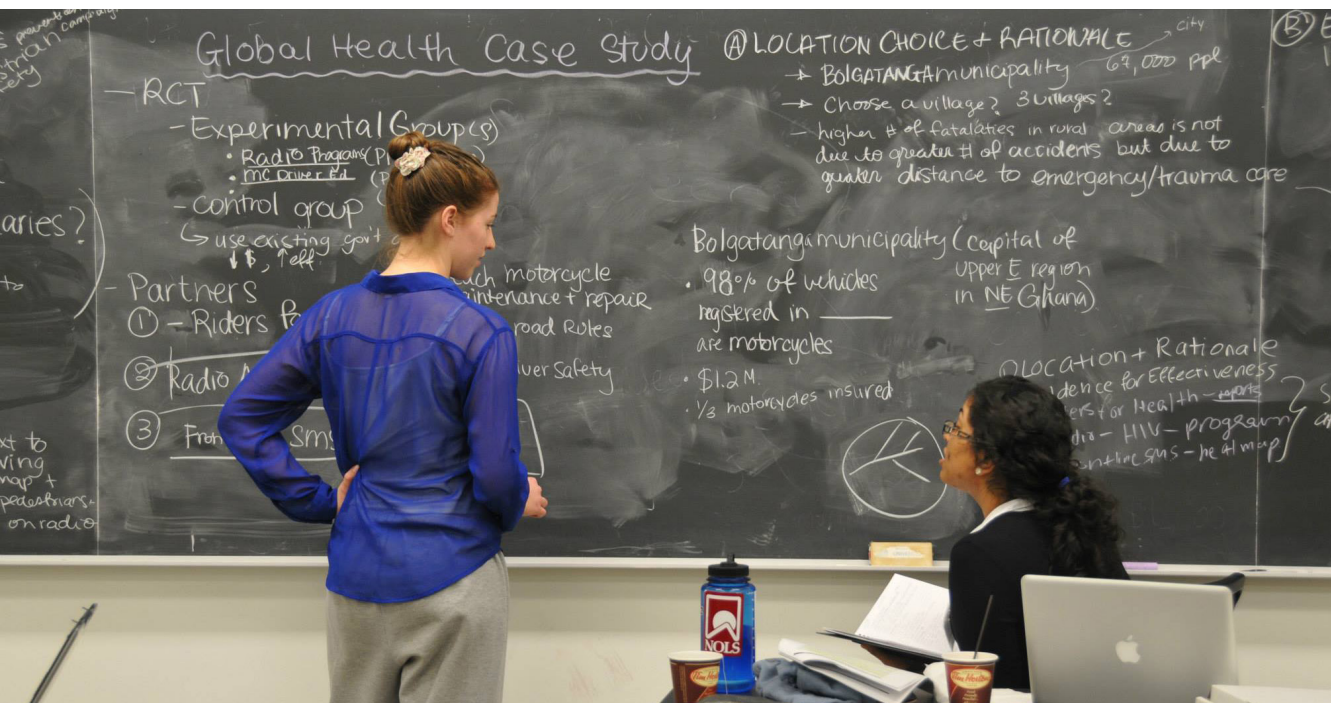 prevention
campaign
Global Health Case Study
- RCT
- Experimental Group(s)
• Radio Programs
• MC Driver Ed
- control group
↳ use existing gov't
↓$, ↑eff
- Partners
① - Riders
motorcycle
maintenance + repair
road Rules
② Radio
Safety
③ SMS
aries?
to
map +
pedestrians
on radio
Ⓐ LOCATION CHOICE + RATIONALE
→ BOLGATANGA municipality → city 67,000 ppl
→ Choose a village? 3 villages?
- higher # of fatalaties in rural areas is not
due to greater # of accidents but due to
greater distance to emergency/trauma care
Bolgatanga municipality (capital of
upper E region
in NE Ghana)
• 98% of vehicles
registered in ______
are motorcycles
• $1.2 M.
• 1/3 motorcycles insured
Location + Rationale
idence for Effectiveness
ers for Health - reports
dio - HIV - program
ontline SMS - heat map
Ⓑ E
NOLS
Tim Hortons
Tim Hortons